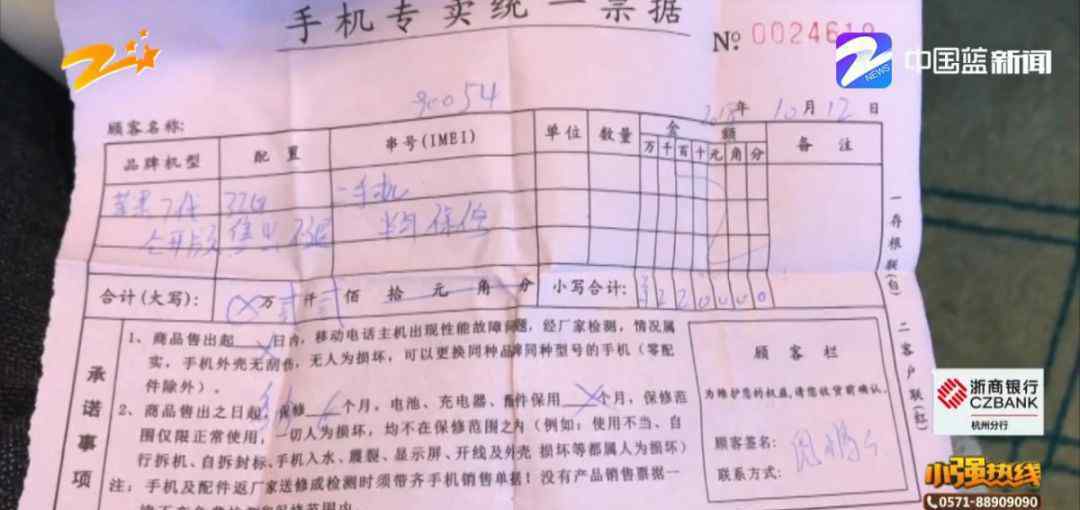 手机专卖统一票据
№ 00246
中国蓝新闻
NEWS
90054
顾客名称:
年 10月12日
品牌机型 配置 串号(IMEI) 单位 数量 金额 备注
万千百十元角分
苹果7代 32G 二手机
保修
合计(大写): 万贰仟贰佰拾元角分 小写合计: ¥220000
一存根联(白)
二客户联(红)
承诺事项
1、商品售出起 日内，移动电话主机出现性能故障问题，经厂家检测，情况属
实，手机外壳无刮伤，无人为损坏，可以更换同种品牌同种型号的手机（零配
件除外）。
2、商品售出之日起 保修 个月，电池、充电器、配件保用 个月，保修范
围仅限正常使用，一切人为损坏，均不在保修范围之内（例如：使用不当、自
行拆机、自拆封标、手机入水、震裂、显示屏、开线及外壳 损坏等都属人为损坏）
注：手机及配件返厂家送修或检测时须带齐手机销售单据！没有产品销售票据一
顾客栏
为维护您的权益，请您收货前确认。
顾客签名:
联系方式:
浙商银行
CZBANK
杭州分行
小强热线
0571-88909090